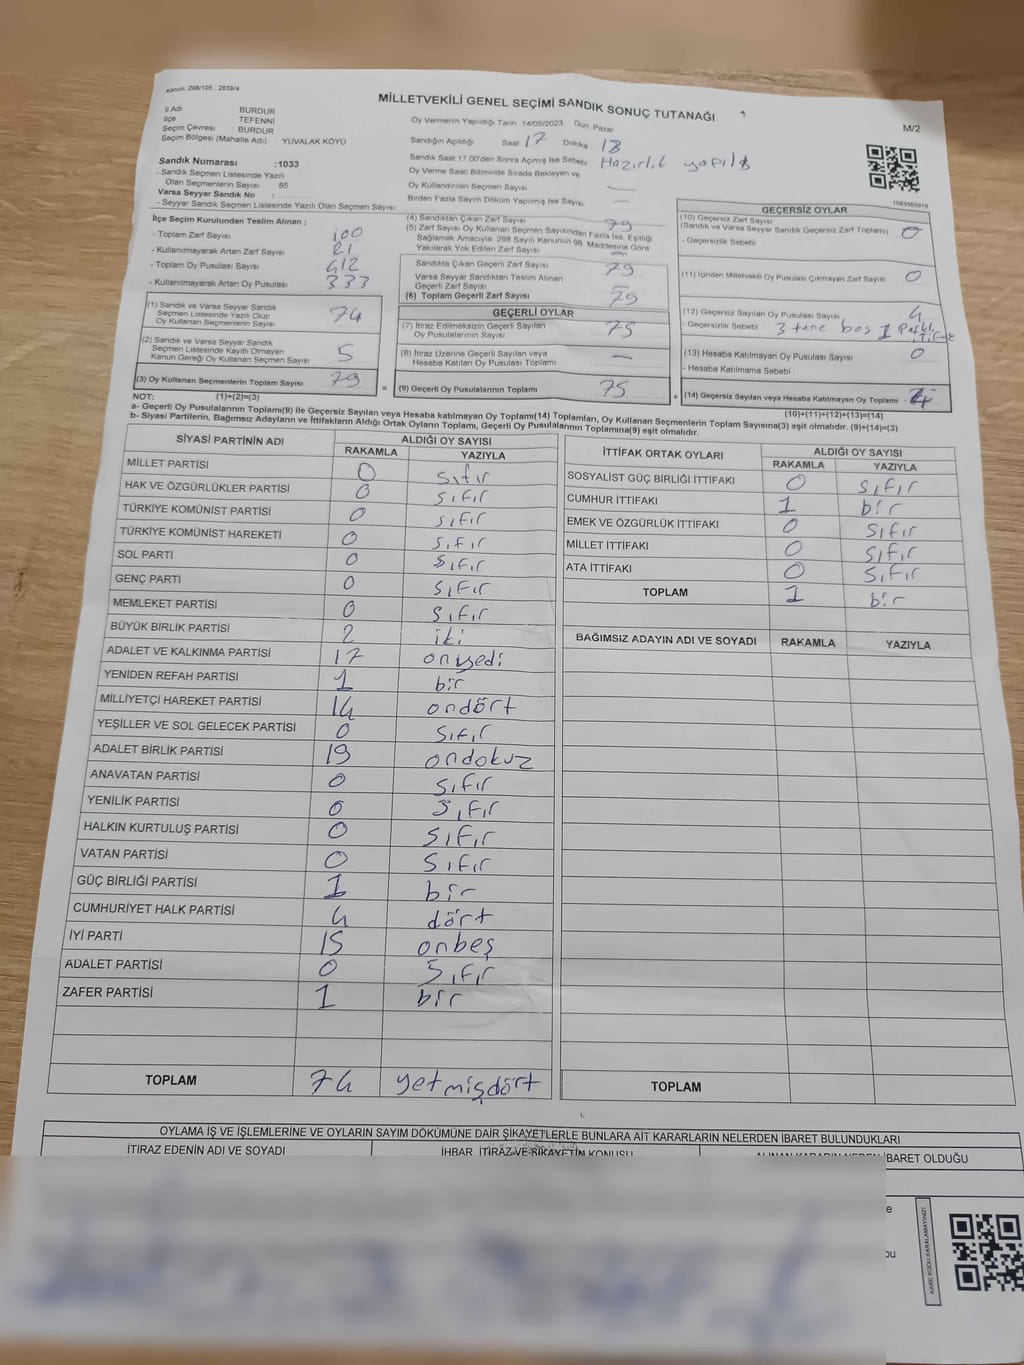 Kanun: 298/105 , 2839/4
MİLLETVEKİLİ GENEL SEÇİMİ SANDIK SONUÇ TUTANAĞI
M/2
İl Adı BURDUR
İlçe TEFENNİ
Seçim Çevresi BURDUR
Seçim Bölgesi (Mahalle Adı) YUVALAK KÖYÜ
Sandık Numarası :1033
- Sandık Seçmen Listesinde Yazılı
Olan Seçmenlerin Sayısı 85
Varsa Seyyar Sandık No :
- Seyyar Sandık Seçmen Listesinde Yazılı Olan Seçmen Sayısı:
Oy Vermenin Yapıldığı Tarih 14/05/2023 Gün Pazar
Sandığın Açıldığı Saat 17 Dakika 18
Sandık Saat 17.00'den Sonra Açılmış İse Sebebi Hazırlık yapıldı
Oy Verme Saati Bitiminde Sırada Bekleyen ve
Oy Kullandırılan Seçmen Sayısı —
Birden Fazla Sayım Döküm Yapılmış İse Sayısı —
İlçe Seçim Kurulundan Teslim Alınan ;
- Toplam Zarf Sayısı 100
- Kullanılmayarak Artan Zarf Sayısı 21
- Toplam Oy Pusulası Sayısı 412
- Kullanılmayarak Artan Oy Pusulası 333
(1) Sandık ve Varsa Seyyar Sandık
Seçmen Listesinde Yazılı Olup
Oy Kullanan Seçmenlerin Sayısı 74
(2) Sandık ve Varsa Seyyar Sandık
Seçmen Listesinde Kayıtlı Olmayan
Kanun Gereği Oy Kullanan Seçmen Sayısı 5
(3) Oy Kullanan Seçmenlerin Toplam Sayısı 79
(1)+(2)=(3)
(4) Sandıktan Çıkan Zarf Sayısı 79
(5) Zarf Sayısı Oy Kullanan Seçmen Sayısından Fazla İse, Eşitliği
Sağlamak Amacıyla, 298 Sayılı Kanunun 98. Maddesine Göre
Yakılarak Yok Edilen Zarf Sayısı —
Sandıkta Çıkan Geçerli Zarf Sayısı 79
Varsa Seyyar Sandıktan Teslim Alınan
Geçerli Zarf Sayısı —
(6) Toplam Geçerli Zarf Sayısı 79
GEÇERLİ OYLAR
(7) İtiraz Edilmeksizin Geçerli Sayılan
Oy Pusulalarının Sayısı 75
(8) İtiraz Üzerine Geçerli Sayılan veya
Hesaba Katılan Oy Pusulası Toplamı —
= (9) Geçerli Oy Pusulalarının Toplamı 75
1083950918
GEÇERSİZ OYLAR
(10) Geçersiz Zarf Sayısı
(Sandık ve Varsa Seyyar Sandık Geçersiz Zarf Toplamı) 0
- Geçersizlik Sebebi
(11) İçinden Milletvekili Oy Pusulası Çıkmayan Zarf Sayısı 0
(12) Geçersiz Sayılan Oy Pusulası Sayısı 4
- Geçersizlik Sebebi 3 tane boş 1
(13) Hesaba Katılmayan Oy Pusulası Sayısı 0
- Hesaba Katılmama Sebebi
+ (14) Geçersiz Sayılan veya Hesaba Katılmayan Oy Toplamı 4
(10)+(11)+(12)+(13)=(14)
NOT:
a- Geçerli Oy Pusulalarının Toplamı(9) ile Geçersiz Sayılan veya Hesaba katılmayan Oy Toplamı(14) Toplamları, Oy Kullanan Seçmenlerin Toplam Sayısına(3) eşit olmalıdır. (9)+(14)=(3)
b- Siyasi Partilerin, Bağımsız Adayların ve İttifakların Aldığı Ortak Oyların Toplamı, Geçerli Oy Pusulalarının Toplamına(9) eşit olmalıdır.
SİYASİ PARTİNİN ADI ALDIĞI OY SAYISI
RAKAMLA YAZIYLA
MİLLET PARTİSİ 0 sıfır
HAK VE ÖZGÜRLÜKLER PARTİSİ 0 sıfır
TÜRKİYE KOMÜNİST PARTİSİ 0 sıfır
TÜRKİYE KOMÜNİST HAREKETİ 0 sıfır
SOL PARTİ 0 sıfır
GENÇ PARTİ 0 sıfır
MEMLEKET PARTİSİ 0 sıfır
BÜYÜK BİRLİK PARTİSİ 2 iki
ADALET VE KALKINMA PARTİSİ 17 onyedi
YENİDEN REFAH PARTİSİ 1 bir
MİLLİYETÇİ HAREKET PARTİSİ 14 ondört
YEŞİLLER VE SOL GELECEK PARTİSİ 0 sıfır
ADALET BİRLİK PARTİSİ 19 ondokuz
ANAVATAN PARTİSİ 0 sıfır
YENİLİK PARTİSİ 0 sıfır
HALKIN KURTULUŞ PARTİSİ 0 sıfır
VATAN PARTİSİ 0 sıfır
GÜÇ BİRLİĞİ PARTİSİ 1 bir
CUMHURİYET HALK PARTİSİ 4 dört
İYİ PARTİ 15 onbeş
ADALET PARTİSİ 0 sıfır
ZAFER PARTİSİ 1 bir
TOPLAM 74 yetmişdört
İTTİFAK ORTAK OYLARI ALDIĞI OY SAYISI
RAKAMLA YAZIYLA
SOSYALİST GÜÇ BİRLİĞİ İTTİFAKI 0 sıfır
CUMHUR İTTİFAKI 1 bir
EMEK VE ÖZGÜRLÜK İTTİFAKI 0 sıfır
MİLLET İTTİFAKI 0 sıfır
ATA İTTİFAKI 0 sıfır
TOPLAM 1 bir
BAĞIMSIZ ADAYIN ADI VE SOYADI RAKAMLA YAZIYLA
TOPLAM
OYLAMA İŞ VE İŞLEMLERİNE VE OYLARIN SAYIM DÖKÜMÜNE DAİR ŞİKAYETLERLE BUNLARA AİT KARARLARIN NELERDEN İBARET BULUNDUKLARI
İTİRAZ EDENİN ADI VE SOYADI İHBAR, İTİRAZ VE ŞİKAYETİN KONUSU ALINAN KARARIN NEDEN İBARET OLDUĞU
KARE KODU KARALAMAYINIZ!